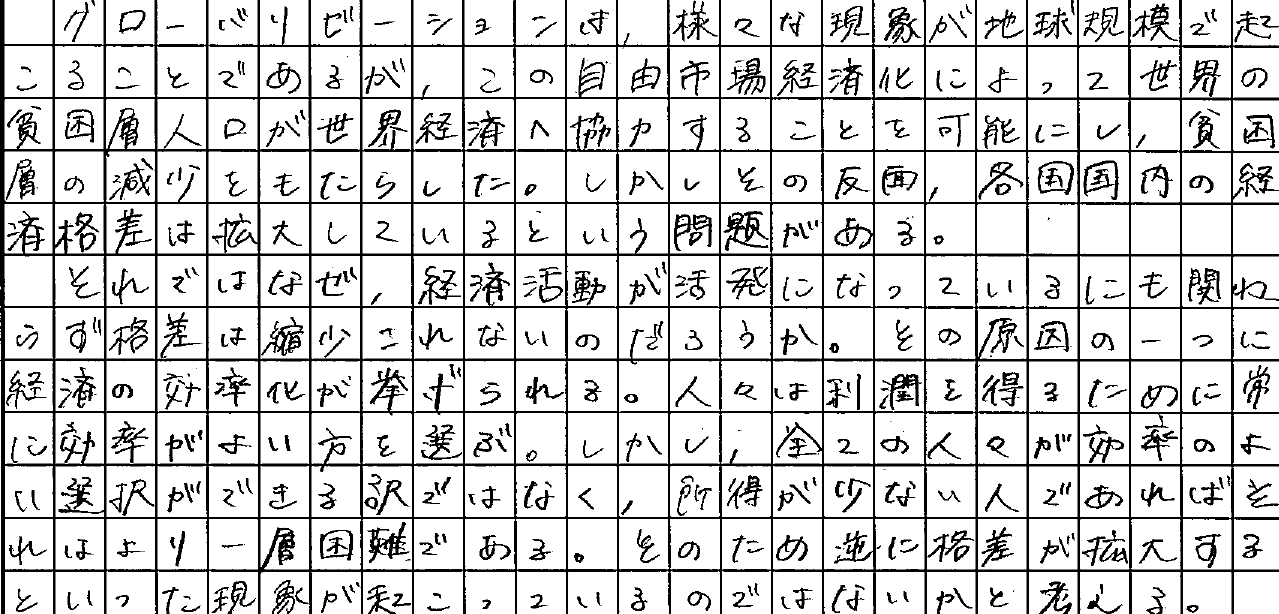 グローバリゼーションは，様々な現象が地球規模で起
こることであるが，この自由市場経済化によって世界の
貧困層人口が世界経済へ協力することを可能にし，貧困
層の減少をもたらした。しかしその反面，各国国内の経
済格差は拡大しているという問題がある。
それではなぜ，経済活動が活発になっているにも関わ
らず格差は縮少されないのだろうか。その原因の一つに
経済の効率化が挙げられる。人々は利潤を得るために常
に効率がよい方を選ぶ。しかし，全ての人々が効率のよ
い選択ができる訳ではなく，所得が少ない人であればそ
れはより一層困難である。そのため逆に格差が拡大する
といった現象が起こっているのではないかと考える。